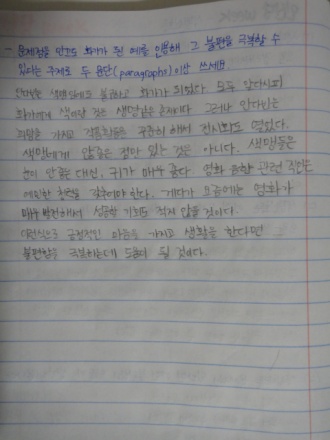 - 문제점을 안고도 화가가 된 예를 인용해 그 불편을 극복할 수
있다는 주제로 두 문단(paragraphs)이상 쓰세요
불구하고 화가가 되었다. 모두 알다시피
화가에게 색이란 것은 생명같은 존재이다. 그러나
가지고 꾸준히 해서 전시회도 열었다.
색맹에게 않좋은 점만 있는 것은 아니다. 색맹들은
눈이 안좋은 대신, 귀가 매우 좋다. 영화 음향 관련 직업은
예민한 청력을 갖추어야 한다. 게다가 요즘에는 영화가
매우 발전해서 성공할 기회도 적지 않을 것이다.
이런식으로 긍정적인 마음을 가지고 생활을 한다면
불편함을 극복하는데 도움이 될 것이다.